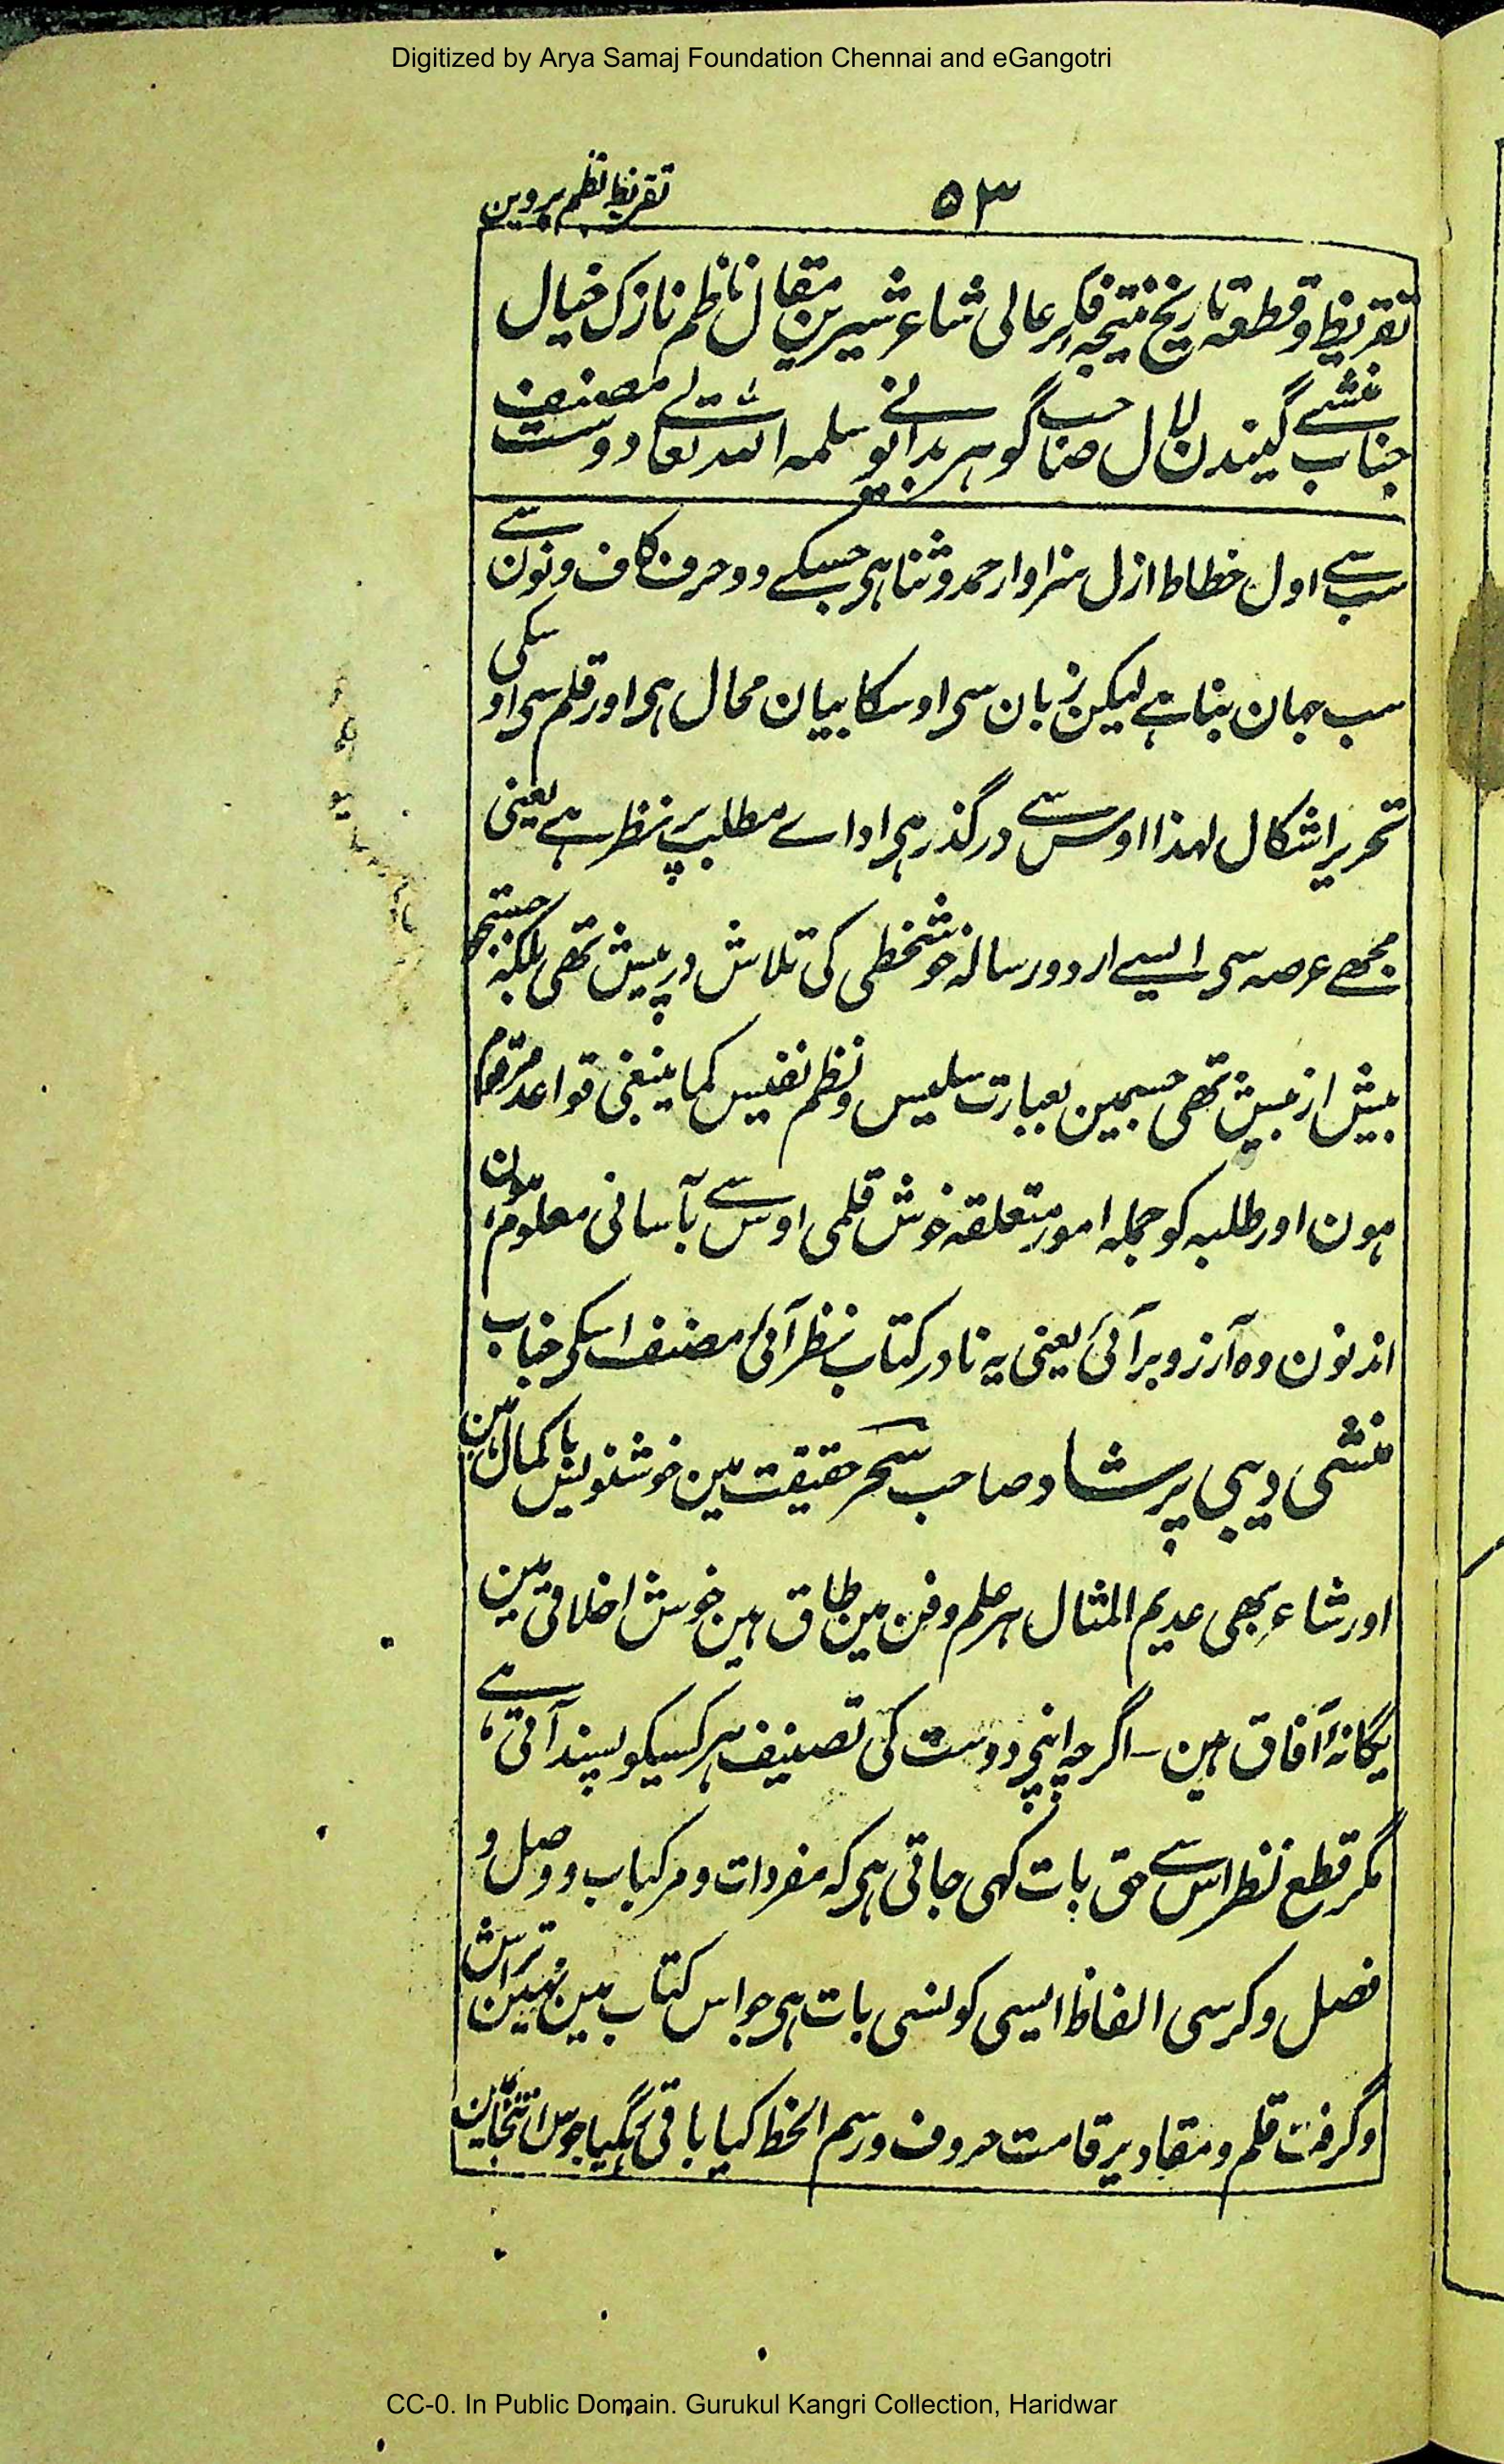 Digitized by Arya Samaj Foundation Chennai and eGangotri
۵۳
تقریظ نظم پروین
تقریظ و قطعہ تاریخ نتیجہ فکر عالی شاعر شیرین مقال ناظم نازک خیال
جناب منشے گیندن لال صاحب گوہر بدایونے سلمہ اللہ تعالے دوست مصنف
سب سے اول خطاط ازل سزاوار حمد و ثنا ہی جسکے دو حرف کاف و نون سے
سب جہان بنا ہے لیکن زبان سی اوسکا بیان محال ہی اور قلم سی اوسکی
تحریر اشکال لہذا اوس سے درگذر ہی اداے مطلب پر نظر ہے یعنی
مجھے عرصہ سی ایسے اردو رسالہ خوشخطی کی تلاش درپیش تھی بلکہ جستجو
بیش از بیش تھی جسمین بعبارت سلیس و نظم نفیس کما ینبغی قواعد مرقوم
ہون اور طلبہ کو جملہ امور متعلقہ خوش قلمی اوس سے بآسانی معلوم ہون
اندنون وہ آرزو برآئی یعنی یہ نادر کتاب نظر آئی مصنف اسکی جناب
منشی دیبی پرشاد صاحب سحر حقیقت مین خوشنویس باکمال ہین
اور شاعر بھی عدیم المثال ہر علم و فن مین طاق ہین خوش اخلاقی مین
یگانۂ آفاق ہین - اگرچہ اپنی دوست کی تصنیف ہر کسیکو پسند آتی ہے
مگر قطع نظر اس سے حق بات کہی جاتی ہی کہ مفردات و مرکباب و وصل و
فصل و کرسی الفاظ ایسی کونسی بات ہی جو اس کتاب مین نہین تراش
و گرفت قلم و مقادیر قامت حروف و رسم الخط کیا باقی رہگیا جو اس انتخاب مین
CC-0. In Public Domain. Gurukul Kangri Collection, Haridwar